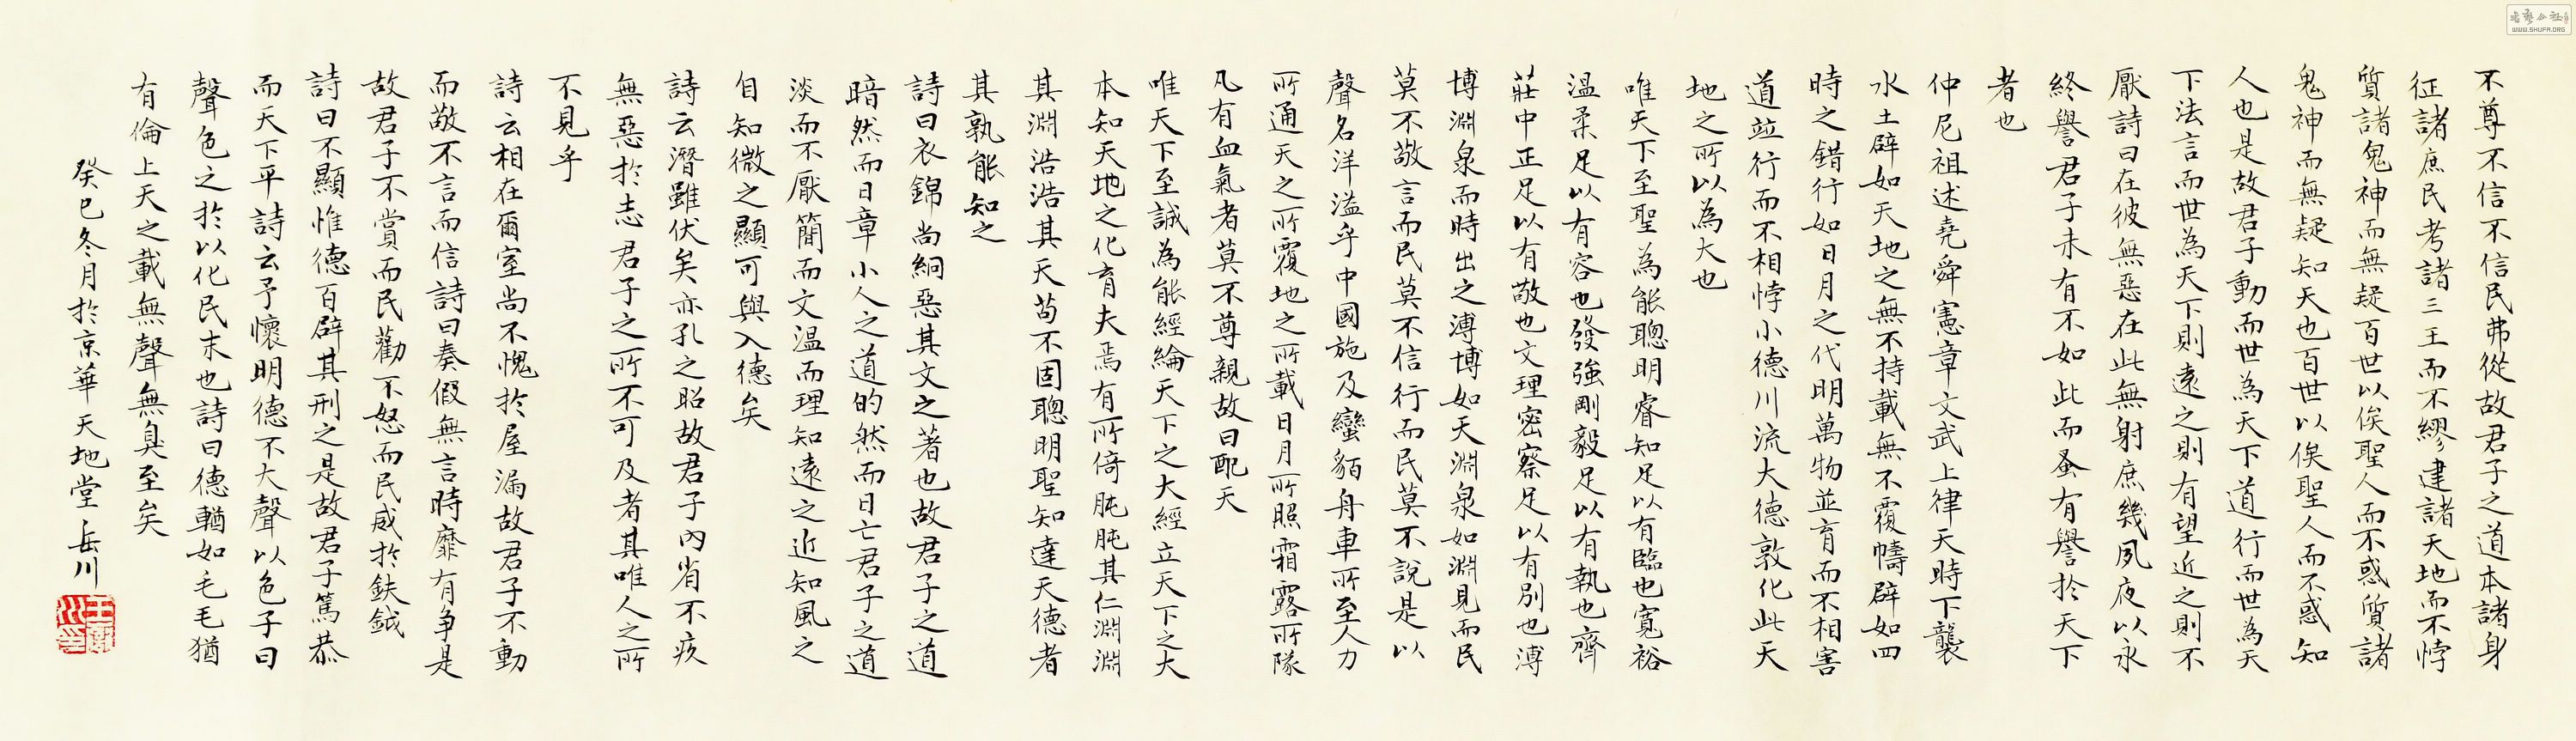 不尊不信不信民弗從故君子之道本諸身
征諸庶民考諸三王而不繆建諸天地而不悖
質諸鬼神而無疑百世以俟聖人而不惑質諸
鬼神而無疑知天也百世以俟聖人而不惑知
人也是故君子動而世為天下道行而世為天
下法言而世為天下則遠之則有望近之則不
厭詩曰在彼無惡在此無射庶幾夙夜以永
終譽君子未有不如此而蚤有譽於天下
者也
仲尼祖述堯舜憲章文武上律天時下襲
水土辟如天地之無不持載無不覆幬辟如四
時之錯行如日月之代明萬物並育而不相害
道竝行而不相悖小德川流大德敦化此天
地之所以為大也
唯天下至聖為能聰明睿知足以有臨也寬裕
溫柔足以有容也發強剛毅足以有執也齊
莊中正足以有敬也文理密察足以有別也溥
博淵泉而時出之溥博如天淵泉如淵見而民
莫不敬言而民莫不信行而民莫不說是以
聲名洋溢乎中國施及蠻貊舟車所至人力
所通天之所覆地之所載日月所照霜露所隊
凡有血氣者莫不尊親故曰配天
唯天下至誠為能經綸天下之大經立天下之大
本知天地之化育夫焉有所倚肫肫其仁淵淵
其淵浩浩其天苟不固聰明聖知達天德者
其孰能知之
詩曰衣錦尚絅惡其文之著也故君子之道
暗然而日章小人之道的然而日亡君子之道
淡而不厭簡而文溫而理知遠之近知風之
自知微之顯可與入德矣
詩云潛雖伏矣亦孔之昭故君子內省不疚
無惡於志君子之所不可及者其唯人之所
不見乎
詩云相在爾室尚不愧於屋漏故君子不動
而敬不言而信詩曰奏假無言時靡有爭是
故君子不賞而民勸不怒而民威於鈇鉞
詩曰不顯惟德百辟其刑之是故君子篤恭
而天下平詩云予懷明德不大聲以色子曰
聲色之於以化民末也詩曰德輶如毛毛猶
有倫上天之載無聲無臭至矣
癸巳冬月於京華天地堂岳川
王岳川印
書藝公社
WWW.SHUFA.ORG